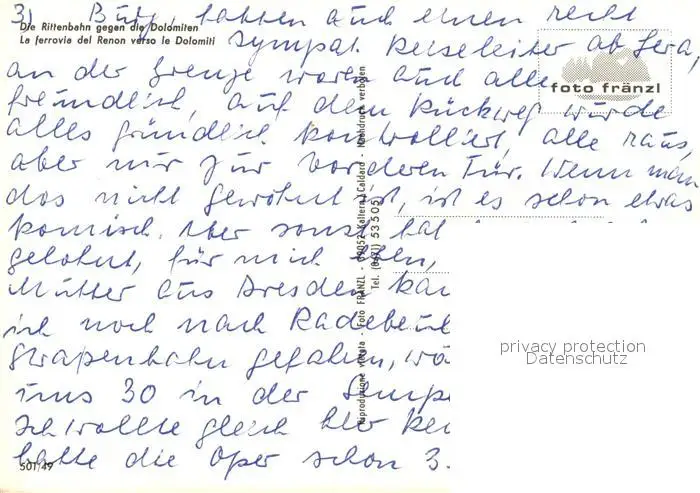 3) Bus, hatten auch einen recht
Die Rittenbahn gegen die Dolomiten
La ferrovia del Renon verso le Dolomiti
sympat. Reiseleiter ab Gera,
an der Grenze waren auch alle
foto fränzl
freundlich, auf dem Rückweg wurde
alles gründlich kontrolliert, alle raus,
aber nur zur vorderen Tür. Wenn man
das nicht gewöhnt ist, ist es schon etwas
komisch. Aber sonst hat
gelohnt, für mich
Mutter aus Dresden
ich noch nach
Straßenbahn gefahren,
uns 30 in der
Ich wollte gleich
hatte die Oper schon 3.
501/49
Riproduzione vietata - Foto FRÄNZL - 39052 Kaltern / Caldaro - Nachdruck verboten
Tel. (0471) 53 5 05
privacy protection
Datenschutz